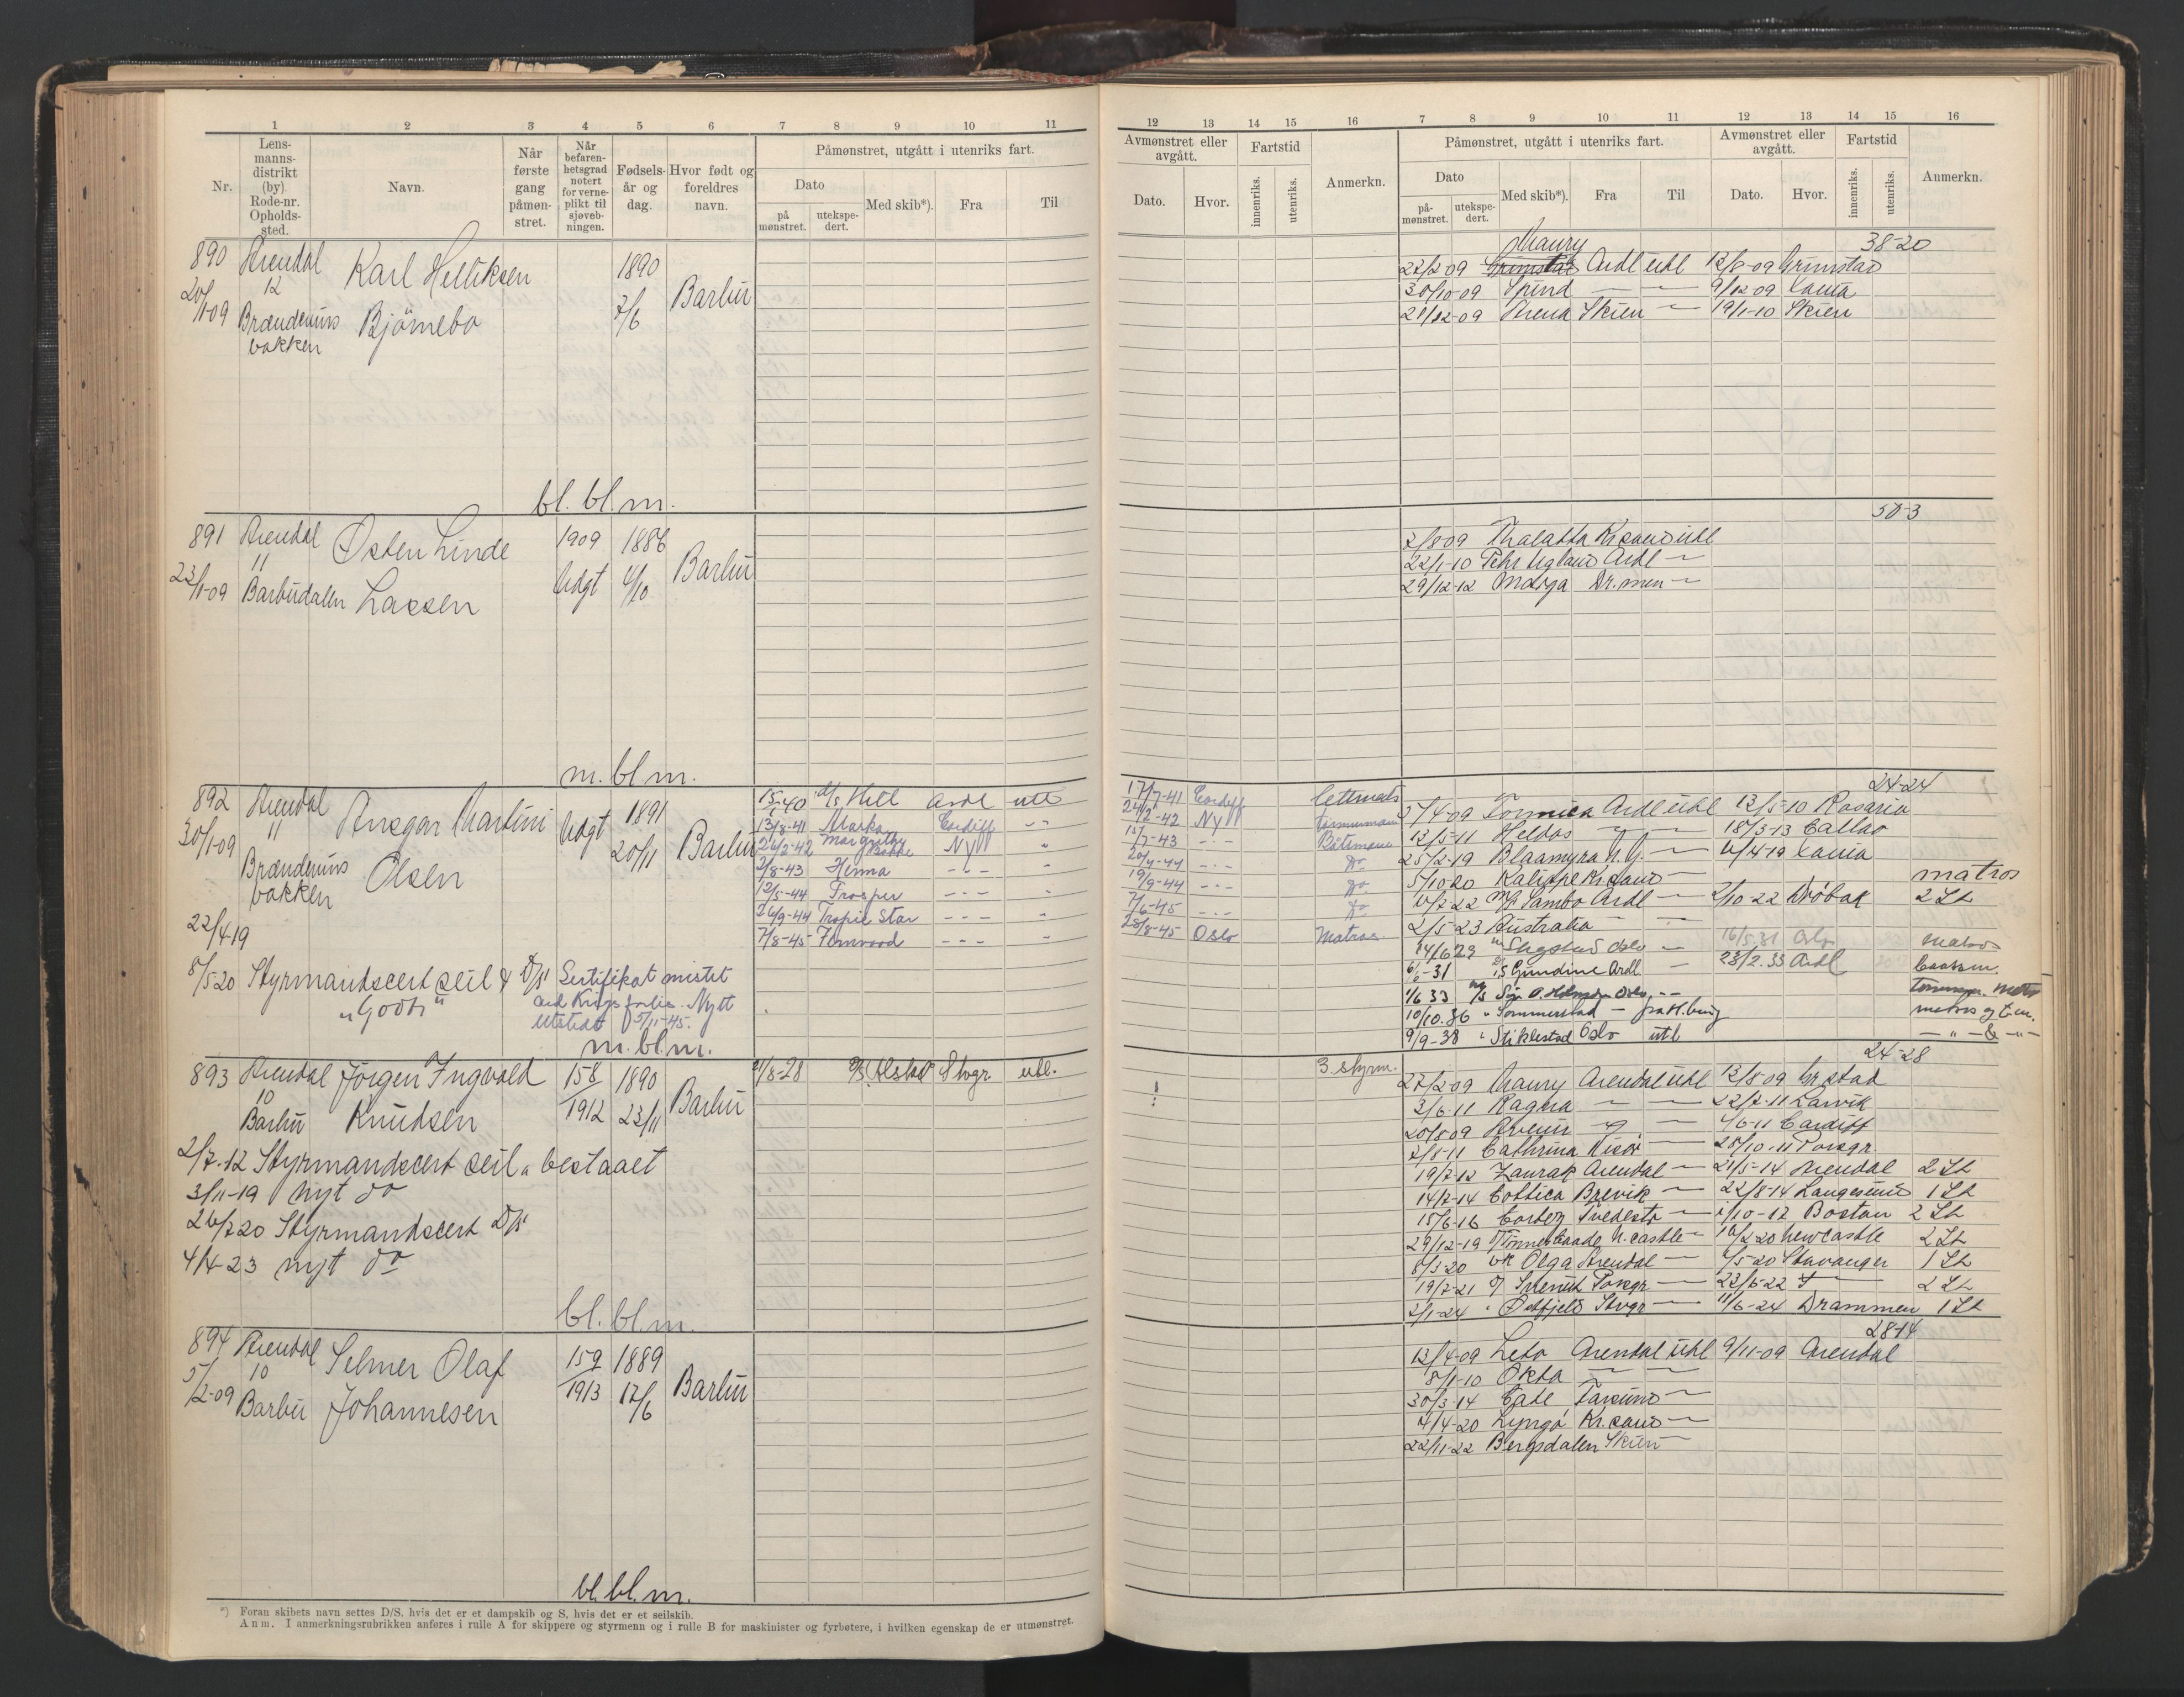 1 2 3 4 5 6 7 8 9 10 11
Nr.
Lens-
manns-
distrikt
(by)
Rode-nr.
Opholds-
sted.
Navn.
Når
første
gang
påmøn-
stret.
Når
befaren-
hetsgrad
notert
for verne-
plikt til
sjøveb-
ningen.
Fødsels-
år og
dag.
Hvor født og
foreldres
navn.
Påmønstret, utgått i utenriks fart.
Dato
på
mønstret.
utekspe-
dert.
Med skib*).
Fra
Til
890 Arendal Karl Helliksen 1890
12
20/1-09 Brændevins Bjørnebo 7/6 Barbu
bakken
bl. bl. m.
891 Arendal Osten Linde 1909 1886
11
23/1-09 Barbudalen Lassen Udgt 4/10 Barbu
m. bl. m.
892 Arendal Ansgar Martini Udgt 1891
30/1-09 11
Brændevins Olsen 20/11 Barbu
bakken
22/4 19
8/5 20 Styrmandscert seil & D/S
"Godt"
Sertifikat mistet
ved Krigsforlis. Nytt
utstedt 5/11-45.
m. bl. m.
15/ -40 d/s Hill Ardl utl
13/8-41 Marka Cardiff -"-
26/2-42 Margrethe Bakke NY "
2/8-43 Henna - - -
12/5-44 Prosper - - -
26/9-44 Tropic Star - - - "
7/8-45 Fernwood - - - "
893 Arendal Jørgen Ingvald 158 1890
10
Barbu Knudsen 1912 23/11 Barbu
11/8-28 D/S Alstad Stvgr utl.
2/7-12 Styrmandscert seil " bestaaet
3/11-19 nyt do
26/7 20 Styrmandscert D/S
4/4-23 nyt do
bl. bl. m.
894 Arendal Selmer Olaf 159 1889
5/2-09 10
Barbu Johannesen 1913 17/6 Barbu
bl. bl. m.
*) Foran skibets navn settes D/S, hvis det er et dampskib og S, hvis det er et seilskib.
Anm. I anmerkningsrubrikken anføres i rulle A for skippere og styrmenn og i rulle B for maskinister og fyrbøtere, i hvilken egenskap de er utmønstret.
12 13 14 15 16 7 8 9 10 11 12 13 14 15 16
Avmønstret eller
avgått.
Dato.
Hvor.
Fartstid
innenriks.
utenriks.
Anmerkn.
Påmønstret, utgått i utenriks fart.
Dato
på-
mønstret.
utekspe-
dert.
Med skib*).
Fra
Til
Avmønstret eller
avgått.
Dato.
Hvor.
Fartstid
innenriks.
utenriks.
Anmerkn.
38-20
Maury
22/2 09 Grimstad Ardl utl 12/8-09 Grimstad
30/10-09 Spind — — 9/12 09
21/12-09 Arena Skien — 19/1-10 Skien
50-3
2/8 09 Thalatta Krsand utl
22/1-10 Fehr Ugland Ardl —
29/12-12 Marga Dr.men —
24-24
17/7-41 Cardiff Lettmats
24/2-42 NY Tømmermann
15/7-43 - - - Båtsmann
20/4-44 - - - do
19/9-44 - - - do
7/6-45 - - - do
28/8-45 Oslo Matros
5/4-09 Formica Ardl utl 12/5-10 Rosario
12/5-11 Heldos — — 18/3-13 Callao
25/2-19 Blaamyra N.Y. — 6/4-19
5/10-20 Kaliope Krsand — matros
6/7 22 M/S Sambo Ardl — 2/10-22 Drøbak 2 St
2/5-23 Australia — —
14/6 29 Oslo — 16/5.31 Oslo matros
-31 Gundine Ardl — 23/2.33 Ardl Baatsm.
1/6 33 Oslo - -
10/10.36 " Sommerstad — fra H.burg matros og t.m.
9/9-38 " Stiklestad Oslo utl — " — & — " —
24-28
3 styrm.
27/2 09 Maury Arendal utl 12/8 09 Gr.stad
3/6-11 Ragna — — 22/7-11 Larvik
20/8 09 — — 4/6-11 Cardiff
2/8-11 Cathrina Risør — 28/10-11 Porsgr.
19/7-12 Zaurak Arendal — 21/5-14 Arendal 2 St
14/7-14 Cottica Brevik — 22/8-14 Langesund 1 St
15/6-16 Tvedestr — /10-17 Boston 2 St
29/12-19 N.castle — 16/2-20 Newcastle 2 St
8/3-20 Olga Arendal — /5-20 Stavanger 1 St
19/7-21 Porsgr — 23/6-22 2 St
2/1-24 " Østfjeld Stvgr — 11/6-24 Drammen 1 St
28-14
13/4-09 Leto Arendal utl 9/11-09 Arendal
8/1-10 Okta — —
30/3-14 Farsund —
14/4-20 Lyngø Kr.sand —
22/11-22 Bergsdalen Skien —